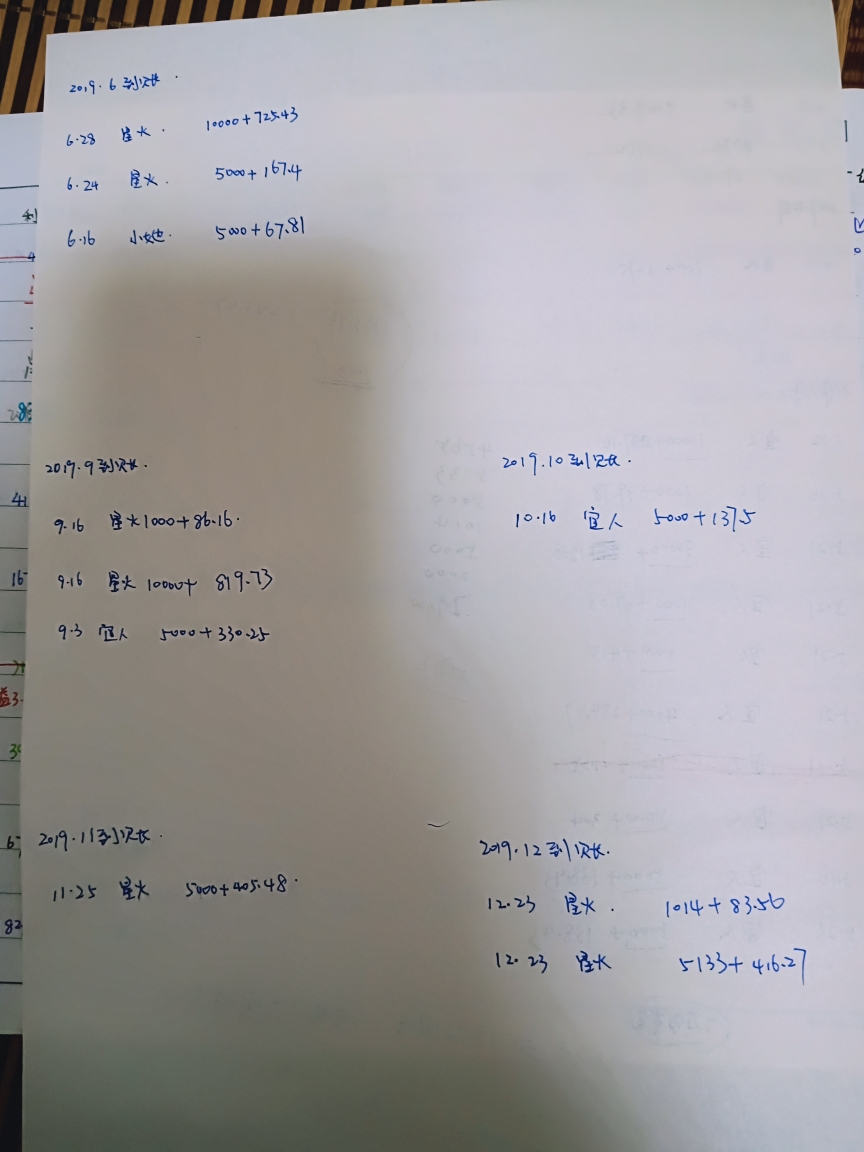 2019.6 到次长.
6.28 星火. 10000+725.43
6.24 星火. 5000+167.4
6.16 小她. 5000+67.81
2019.9 到次长.
9.16 星火 1000+86.16.
9.16 星火 10000+ 819.73
9.3 宜人 5000+330.25
2019.10 到次长.
10.16 宜人 5000+137.5
2019.11 到次长.
11.25 星火 5000+405.48.
2019.12 到次长.
12.23 星火. 1014+83.56
12.23 星火 5133+416.27